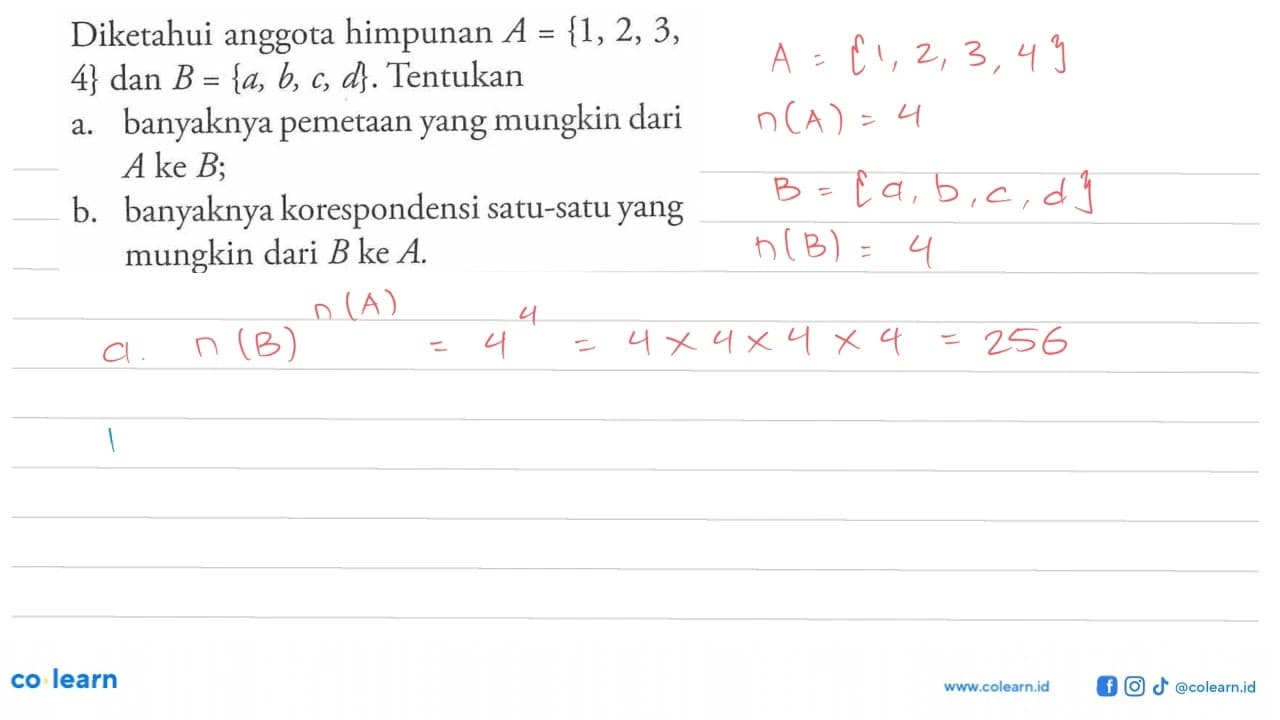 Diketahui anggota himpunan A = {1, 2, 3,
4} dan B = {a, b, c, d}. Tentukan
a. banyaknya pemetaan yang mungkin dari
A ke B;
b. banyaknya korespondensi satu-satu yang
mungkin dari B ke A.
A = {1, 2, 3, 4}
n(A) = 4
B = {a, b, c, d}
n(B) = 4
a. n(B)^n(A) = 4^4 = 4 × 4 × 4 × 4 = 256
co learn
www.colearn.id
@colearn.id